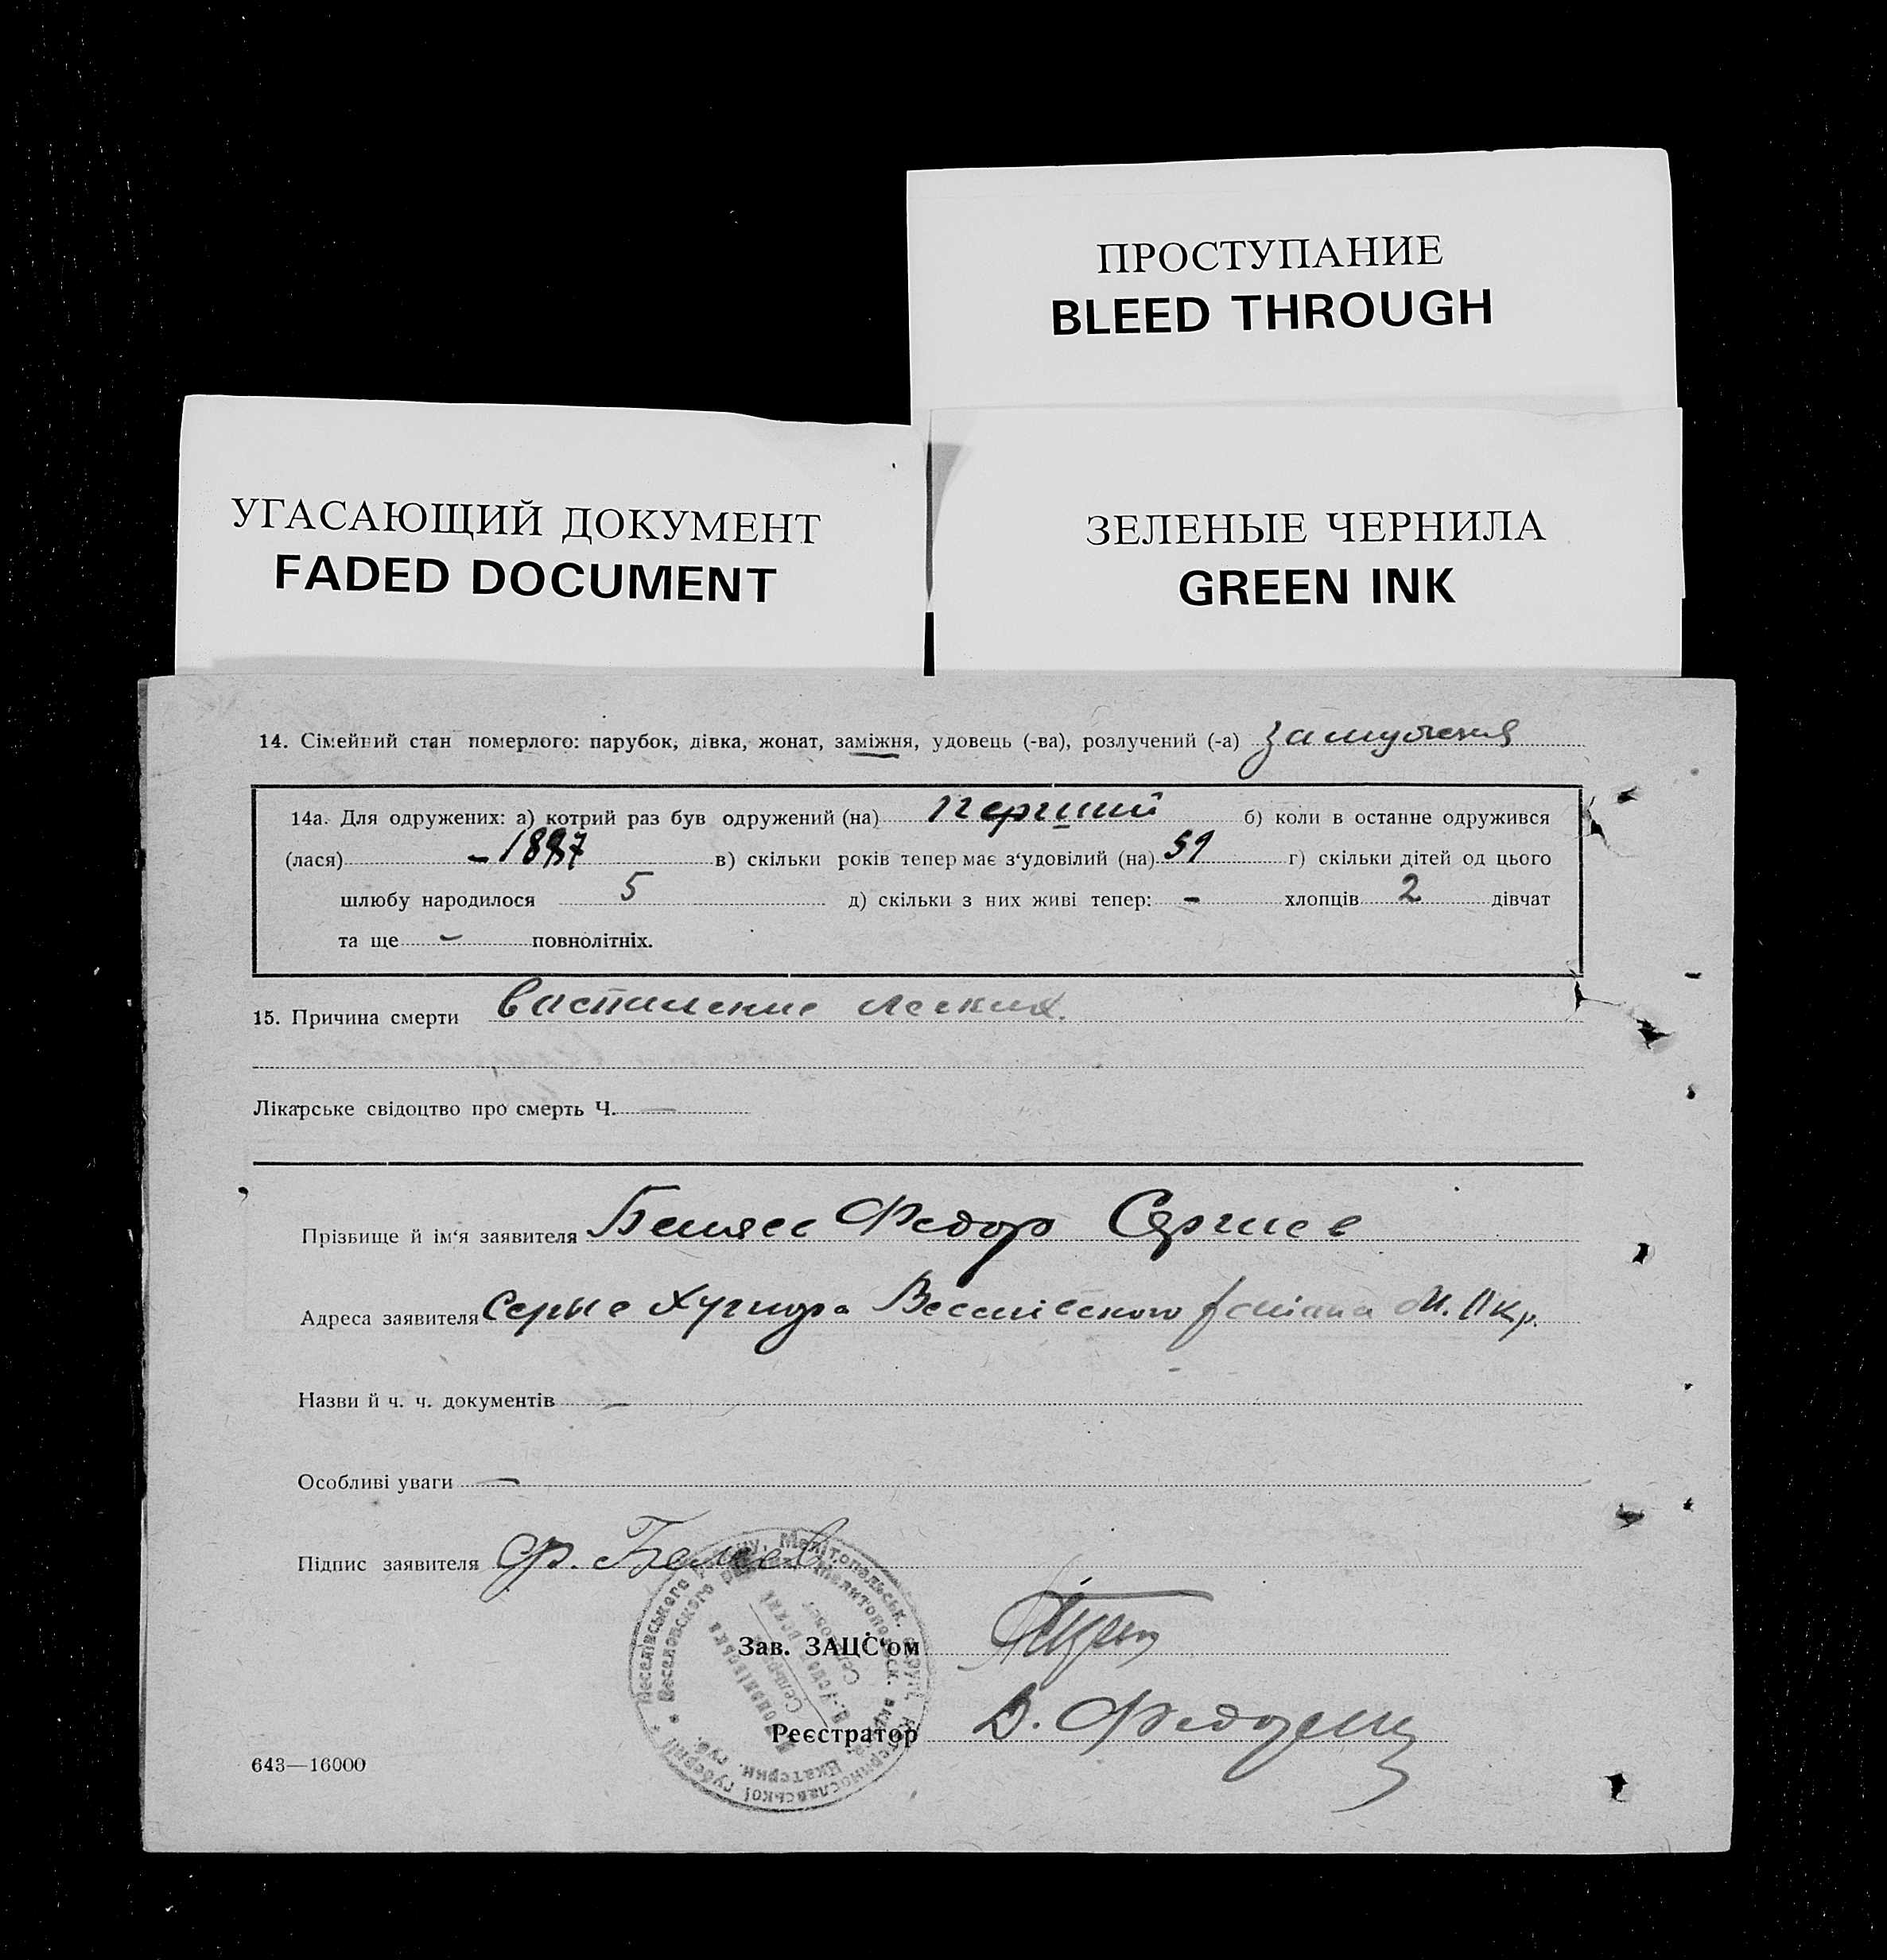 ПРОСТУПАНИЕ
BLEED THROUGH
УГАСАЮЩИЙ ДОКУМЕНТ
FADED DOCUMENT
ЗЕЛЕНЫЕ ЧЕРНИЛА
GREEN INK
14. Сімейний стан померлого: парубок, дівка, жонат, заміжня, удовець (-ва), розлучений (-а)
14а. Для одружених: а) котрий раз був одружений (на) перший б) коли в останне одружився
(лася) - 1897 в) скільки років тепер має з'удовілий (на) 51 г) скільки дітей од цього
шлюбу народилося 5 д) скільки з них живі тепер: - хлопців 2 дівчат
та ще - повнолітніх.
15. Причина смерти васпиление легких.
Лікарське свідоцтво про смерть Ч. —
Прізвище й ім'я заявителя Беляев Федор Сергиев
Адреса заявителя Хутора Веселовского М. Окр.
Назви й ч. ч. документів —
Особливі уваги —
Підпис заявителя Ф. Беляев
Зав. ЗАЦС'ом
Реєстратор
643—16000